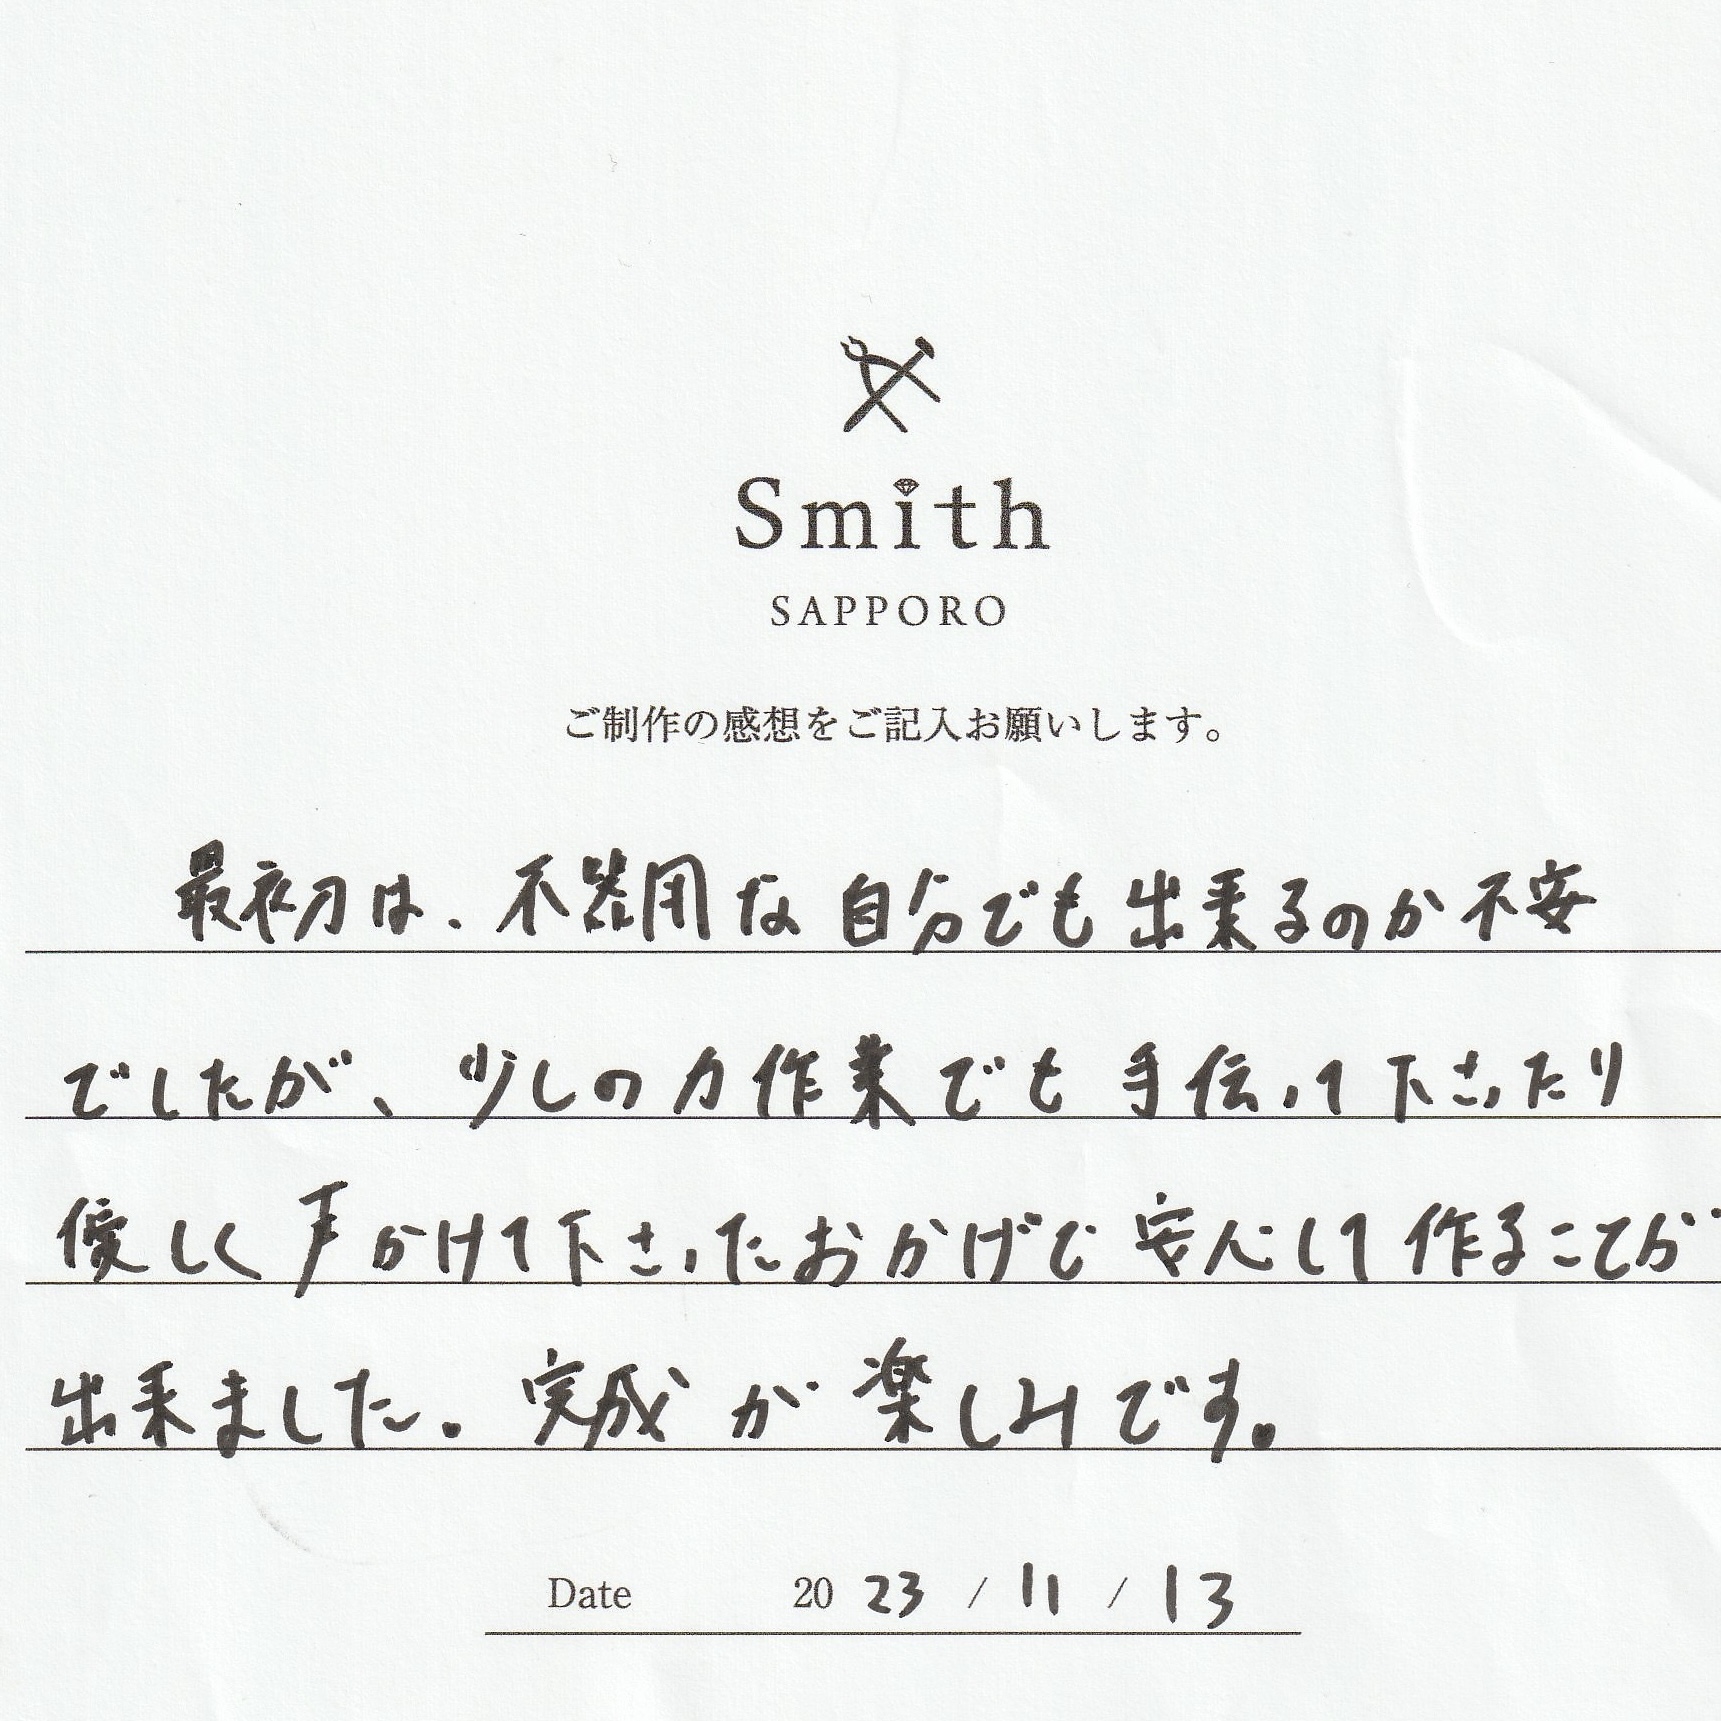 Smith
SAPPORO
ご制作の感想をご記入お願いします。
最初は、不器用な自分でも出来るのか不安
でしたが、少しの力作業でも手伝って下さったり
優しく声かけて下さったおかげで安心して作ることが
出来ました。完成が楽しみです。
Date 2023 / 11 / 13